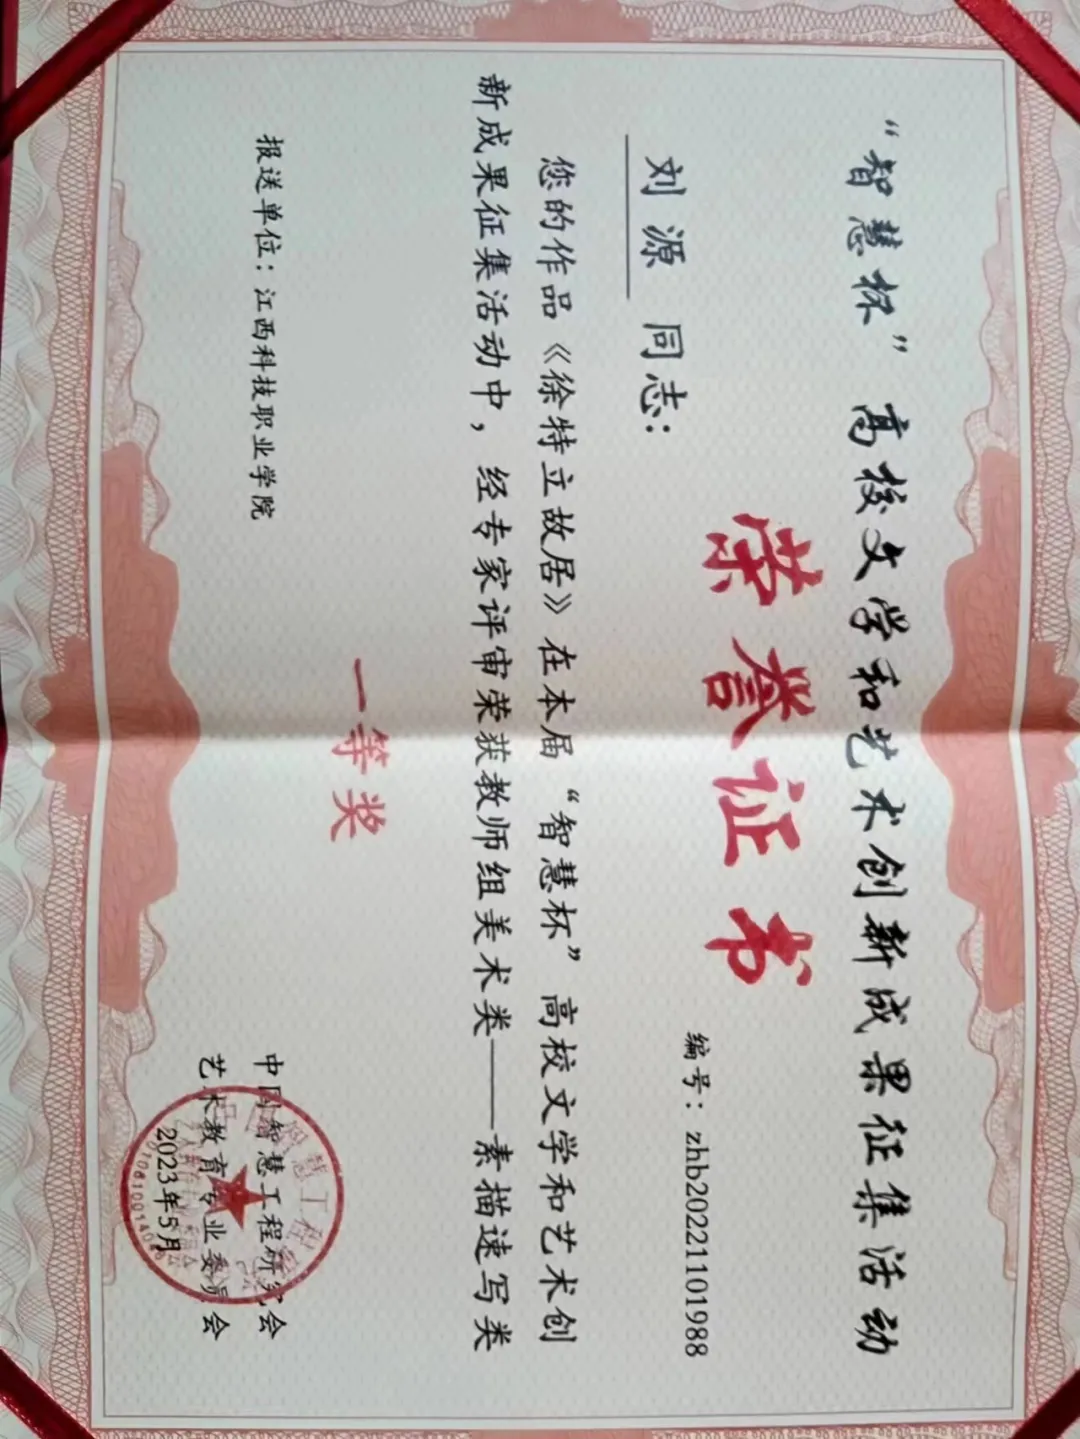 “智慧杯”高校文学和艺术创新成果征集活动
荣誉证书
编号：zhb20221101988
刘源 同志：
您的作品《徐特立故居》在本届“智慧杯”高校文学和艺术创
新成果征集活动中，经专家评审荣获教师组美术类——素描速写类
一等奖
报送单位：江西科技职业学院
中国智慧工程研究会
艺术教育专业委员会
2023年5月